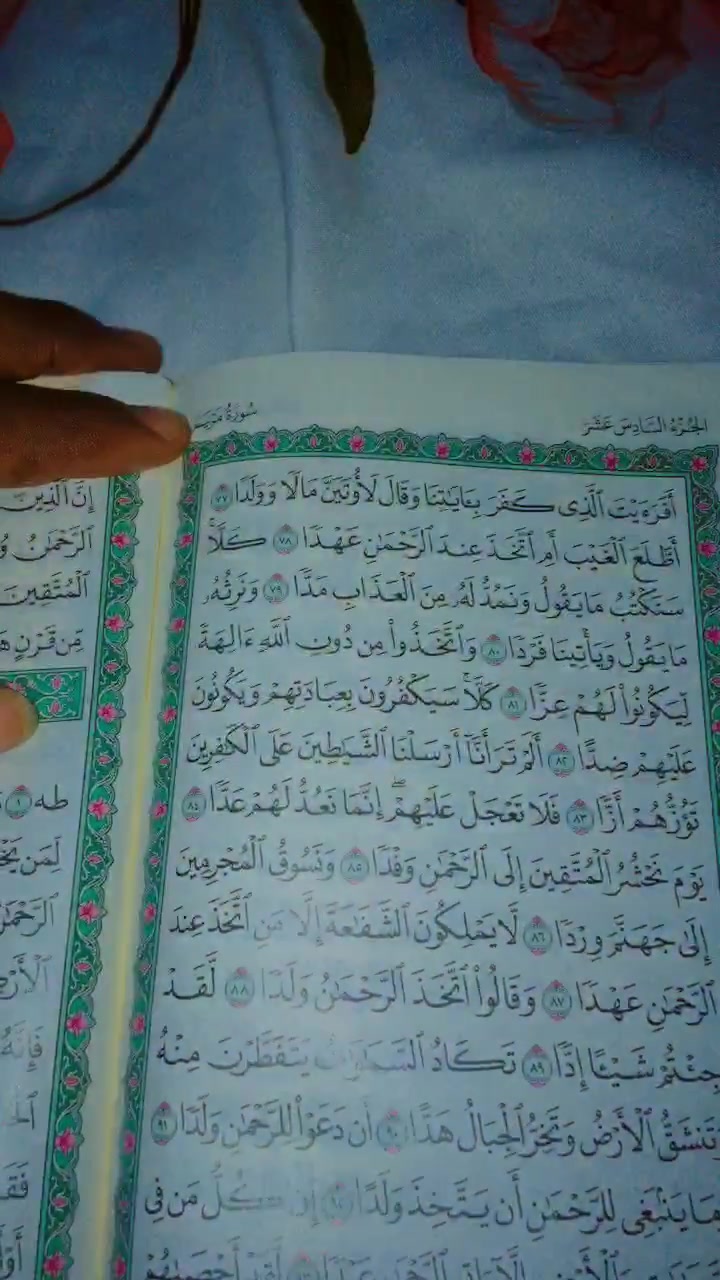 الجزء السادس عشر
سورة مريم
أَفَرَءَيْتَ ٱلَّذِى كَفَرَ بِـَٔايَـٰتِنَا وَقَالَ لَأُوتَيَنَّ مَالًا وَوَلَدًا ٧٧
أَطَّلَعَ ٱلْغَيْبَ أَمِ ٱتَّخَذَ عِندَ ٱلرَّحْمَـٰنِ عَهْدًا ٧٨ كَلَّا
سَنَكْتُبُ مَا يَقُولُ وَنَمُدُّ لَهُۥ مِنَ ٱلْعَذَابِ مَدًّا ٧٩ وَنَرِثُهُۥ
مَا يَقُولُ وَيَأْتِينَا فَرْدًا ٨٠ وَٱتَّخَذُوا۟ مِن دُونِ ٱللَّهِ ءَالِهَةً
لِّيَكُونُوا۟ لَهُمْ عِزًّا ٨١ كَلَّا سَيَكْفُرُونَ بِعِبَادَتِهِمْ وَيَكُونُونَ
عَلَيْهِمْ ضِدًّا ٨٢ أَلَمْ تَرَ أَنَّآ أَرْسَلْنَا ٱلشَّيَـٰطِينَ عَلَى ٱلْكَـٰفِرِينَ
تَؤُزُّهُمْ أَزًّا ٨٣ فَلَا تَعْجَلْ عَلَيْهِمْ إِنَّمَا نَعُدُّ لَهُمْ عَدًّا ٨٤
يَوْمَ نَحْشُرُ ٱلْمُتَّقِينَ إِلَى ٱلرَّحْمَـٰنِ وَفْدًا ٨٥ وَنَسُوقُ ٱلْمُجْرِمِينَ
إِلَىٰ جَهَنَّمَ وِرْدًا ٨٦ لَّا يَمْلِكُونَ ٱلشَّفَـٰعَةَ إِلَّا مَنِ ٱتَّخَذَ عِندَ
ٱلرَّحْمَـٰنِ عَهْدًا ٨٧ وَقَالُوا۟ ٱتَّخَذَ ٱلرَّحْمَـٰنُ وَلَدًا ٨٨ لَّقَدْ
جِئْتُمْ شَيْـًٔا إِدًّا ٨٩ تَكَادُ ٱلسَّمَـٰوَٰتُ يَتَفَطَّرْنَ مِنْهُ
وَتَنشَقُّ ٱلْأَرْضُ وَتَخِرُّ ٱلْجِبَالُ هَدًّا ٩٠ أَن دَعَوْا۟ لِلرَّحْمَـٰنِ وَلَدًا ٩١
وَمَا يَنۢبَغِى لِلرَّحْمَـٰنِ أَن يَتَّخِذَ وَلَدًا ٩٢ إِن كُلُّ مَن فِى
إِنَّ ٱلَّذِينَ
ٱلرَّحْمَـٰنُ
ٱلْمُتَّقِينَ
مِّن قَرْنٍ
طه ١
لِّمَن